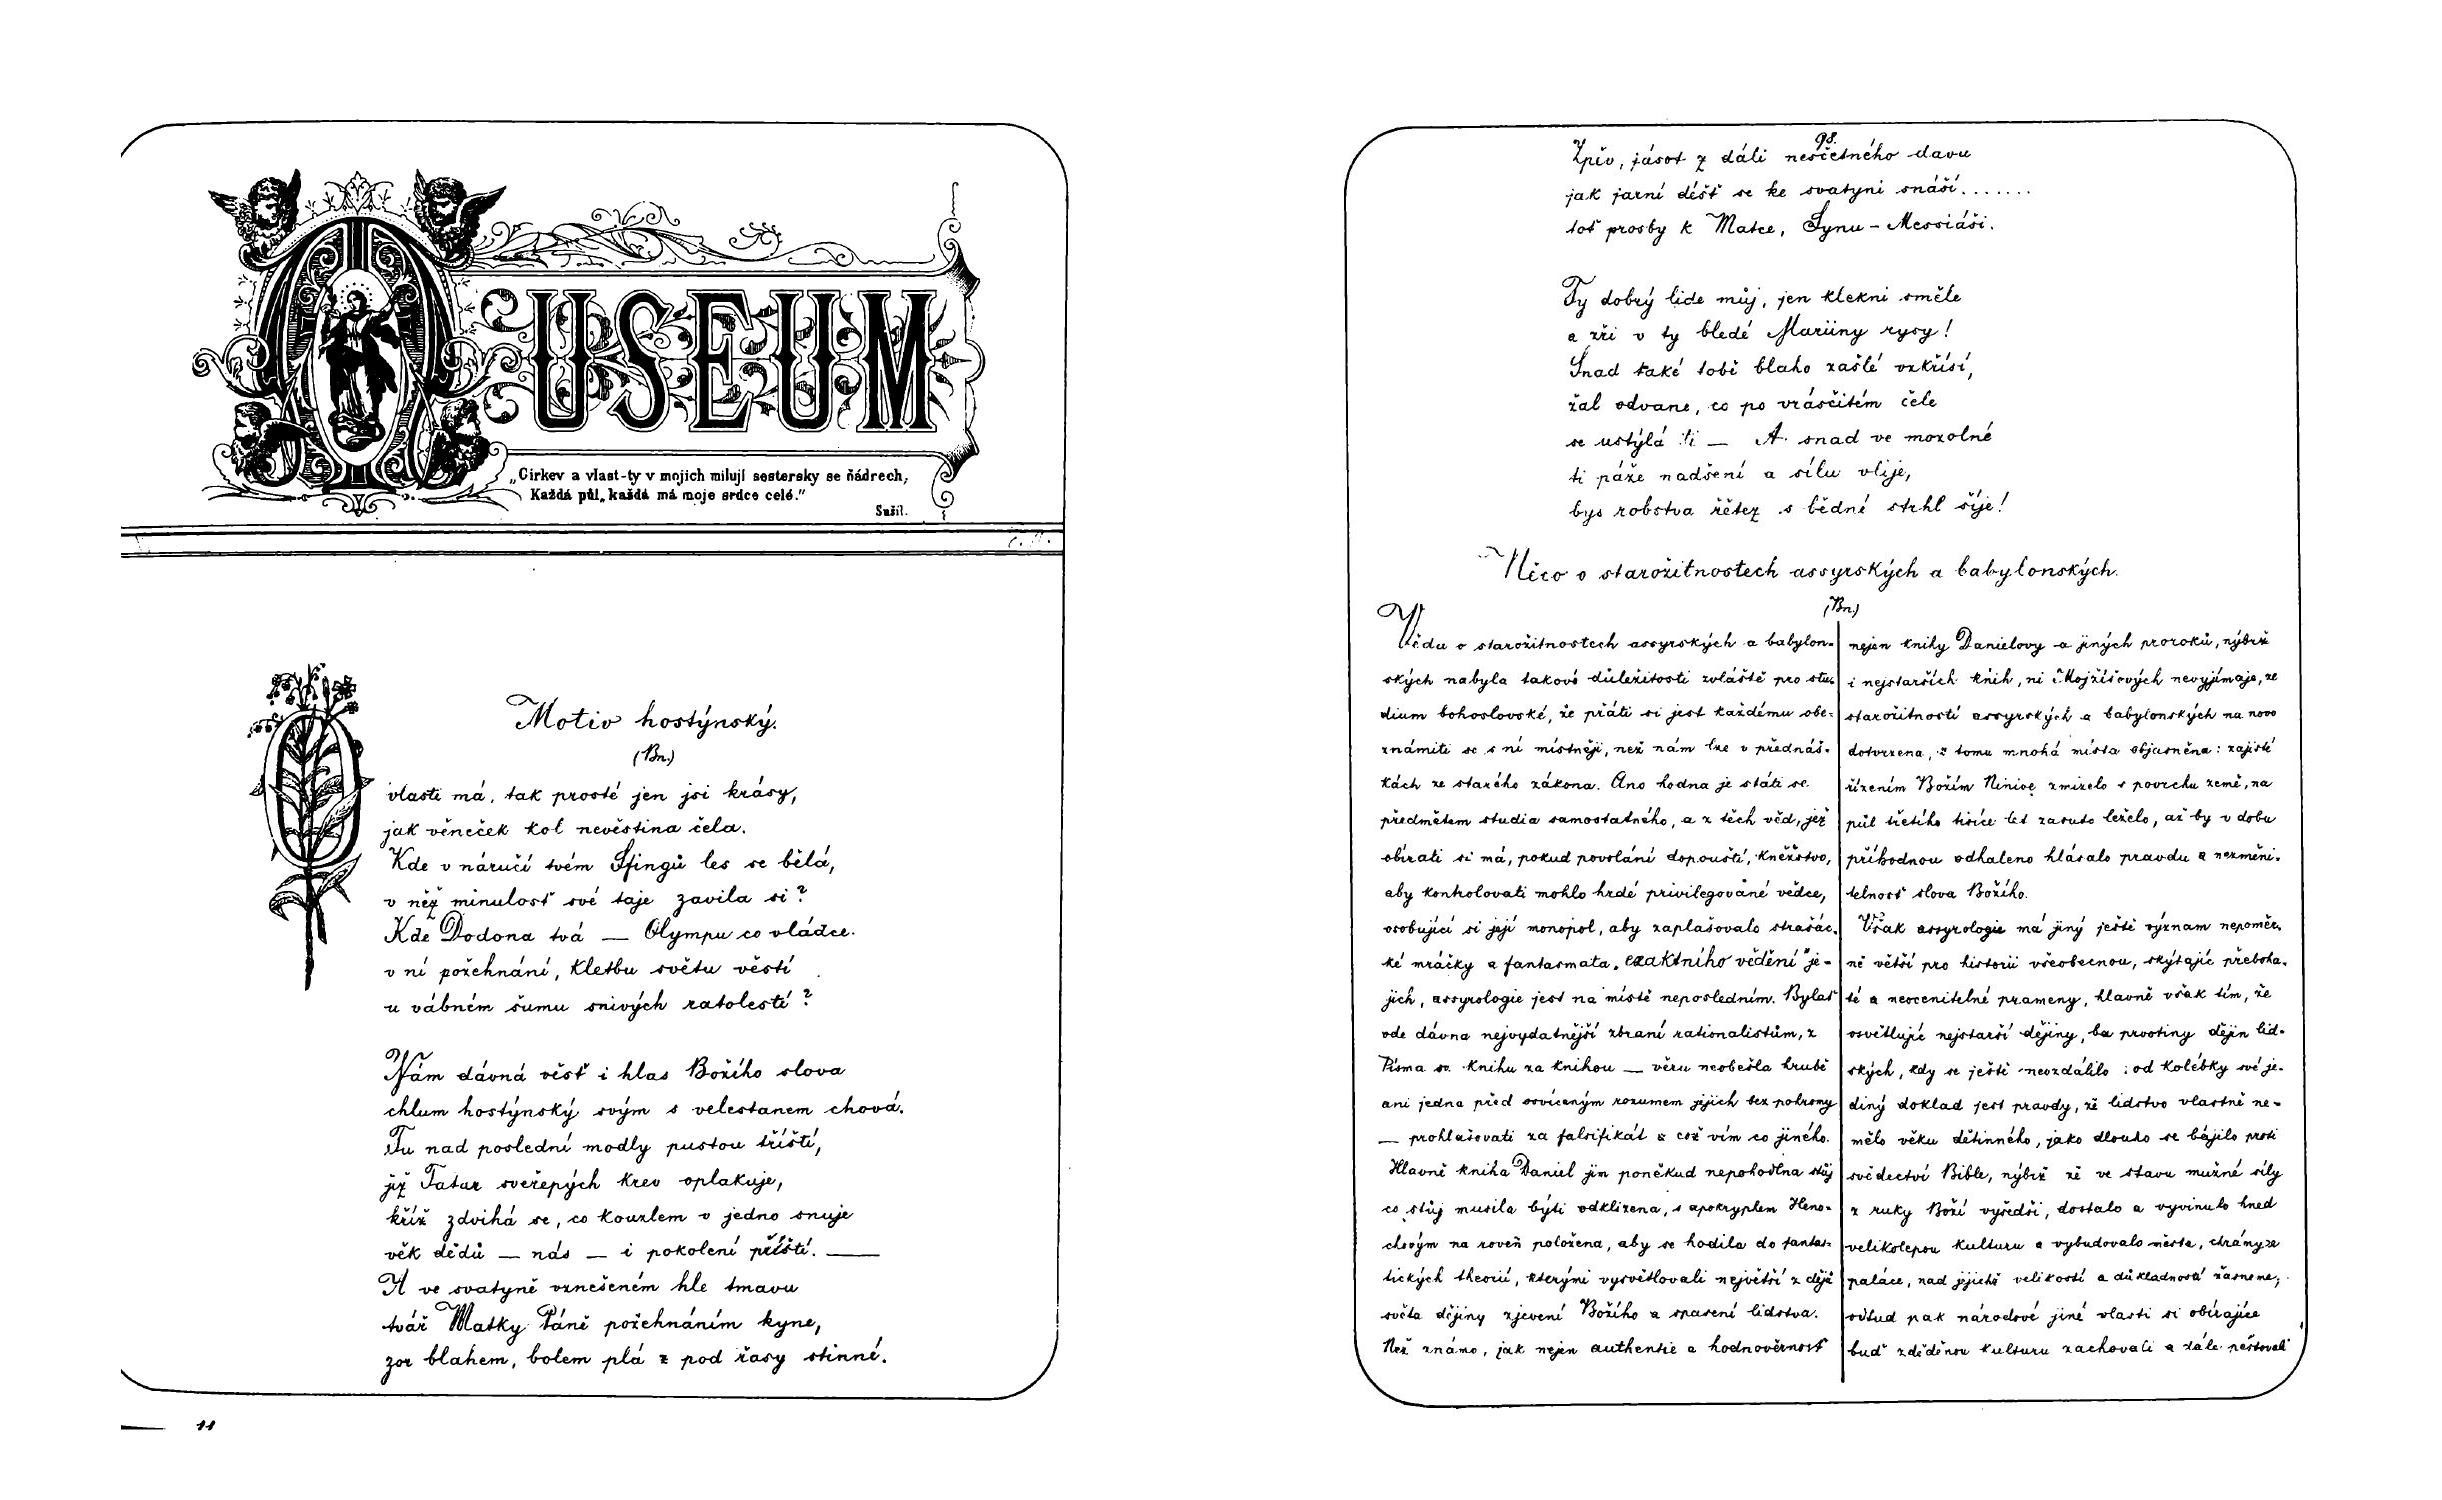 MUSEUM
„Církev a vlast-ty v mojich milují sestersky se ňádrech,
Každá půl, každá má moje srdce celé.”
Sušil.
Motiv hostýnský.
(Bn.)
O vlasti má, tak prosté jen jsi krásy,
jak věneček kol nevěstina čela.
Kde v náručí tvém Sfingů les se bělá,
v něž minulosť své taje zavila si?
Kde Dodona tvá — Olympu co vládce.
v ní požehnání, kletbu světu věstí
u vábném šumu snivých ratolestí?
Nám dávná věsť i hlas Božího slova
chlum hostýnský svým s velestanem chová.
Tu nad poslední modly pustou tříští,
již Tatar sveřepých krev oplakuje,
kříž zdvihá se, co kouzlem v jedno snuje
věk dědů — nás — i pokolení příští. —
A ve svatyně vznešeném hle tmavu
tvář Matky Páně požehnáním kyne,
zor blahem, bolem plá z pod řasy stinné.
11
98.
Zpěv, jásot z dáli nesčetného davu
jak jarní déšť se ke svatyni snáší.......
toť prosby k Matce, Synu - Messiáši.
Ty dobrý lide můj, jen klekni směle
a zři v ty bledé Mariiny rysy!
Snad také tobě blaho zašlé vzkřísí,
žal odvane, co po vrásčitém čele
se ustýlá ti — A snad ve mozolné
ti páže nadšení a sílu vlije,
bys robstva řětez s bědné strhl šíje!
Něco o starožitnostech assyrských a babylonských.
(Bn.)
Věda o starožitnostech assyrských a babylon-
ských nabyla takové důležitosti zvláště pro stu-
dium bohoslovské, že přáti si jest každému obe-
známiti se s ní místněji, než nám lze v přednáš-
kách ze starého zákona. Ano hodna je státi se
předmětem studia samostatného, a z těch věd, jež
obírati si má, pokud povolání dopouští, kněžstvo,
aby kontrolovati mohlo hrdé privilegované vědce,
osobující si její monopol, aby zaplašovalo strašác-
ké mráčky a fantasmata „exaktního vědění” je-
jich, assyrologie jest na místě neposledním. Bylať
ode dávna nejvydatnější zbraní rationalistům, z
Písma sv. knihu za knihou — věru neobešla hrubě
ani jedna před osvíceným rozumem jejich bez pohromy
— prohlašovati za falsifikát a což vím co jiného.
Hlavně kniha Daniel jim poněkud nepohodlna stůj
co stůj musila býti odklizena, s apokryplem Heno-
chovým na roveň položena, aby se hodila do fantas-
tických theorií, kterými vysvětlovali největší z dějů
světa dějiny zjevení Božího a spasení lidstva.
Než známo, jak nejen authentie a hodnověrnosť
nejen knihy Danielovy a jiných proroků, nýbrž
i nejstarších knih, ni Mojžíšových nevyjímaje, ze
starožitností assyrských a babylonských na novo
dotvrzena, z tomu mnohá místa objasněna: zajisté
řízením Božím Ninive zmizelo s povrchu země, na
půl třetího tisíce let zasuto leželo, až by v dobu
příhodnou odhaleno hlásalo pravdu a nezměni-
telnosť slova Božího.
Však assyrologie má jiný ještě význam nepoměr-
ně větší pro historii všeobecnou, skýtajíc přeboha-
té a neocenitelné prameny, hlavně však tím, že
osvětlujíc nejstarší dějiny, ba prvotiny dějin lid-
ských, kdy se ještě neozdálilo od kolébky své je-
diný doklad jest pravdy, že lidstvo vlastně ne-
mělo věku dětinného, jako dlouho se bájilo proti
svědectví Bible, nýbrž že ve stavu mužné síly
z ruky Boží vyšedši, dostalo a vyvinulo hned
velikolepou kulturu a vybudovalo města, chrámy a
paláce, nad jejichž velikostí a důkladností žasneme;
odtud pak národové jiné vlasti si obírajíce
buď zděděnou kulturu zachovali a dále pěstovali